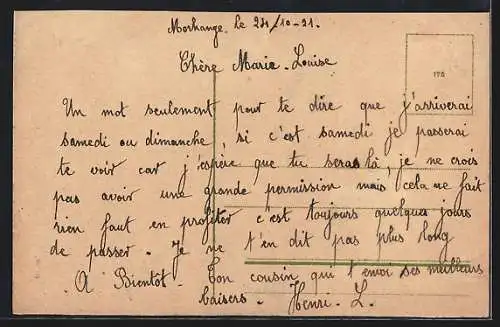 Morhange. Le 24/10-21.
Chère Marie-Louise
Un mot seulement pour te dire que j'arriverai
samedi ou dimanche, si c'est samedi je passerai
te voir car j'espère que tu seras là, je ne crois
pas avoir une grande permission mais cela ne fait
rien faut en profiter c'est toujours quelques jours
de passer. Je ne t'en dit pas plus long
A Bientôt. Ton cousin qui t'envoi ses meilleurs
baisers. Henri. L.
175